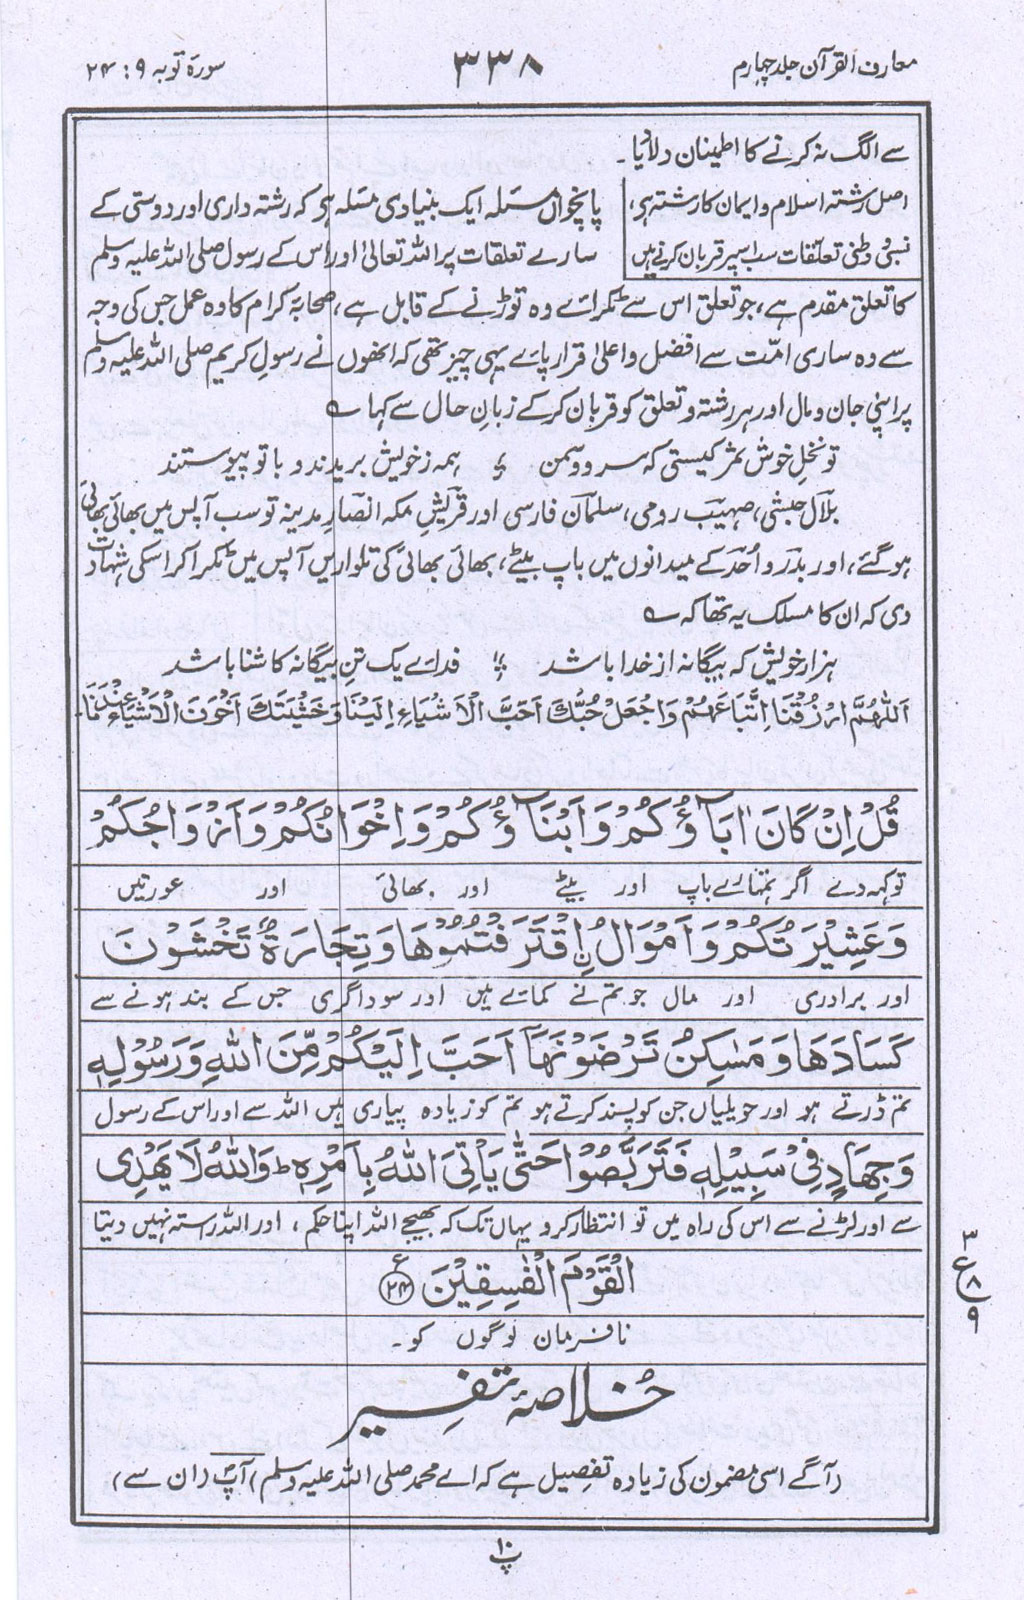 معارف القرآن جلد چہارم
۳۳۸
سورۃ توبہ ۹ : ۲۴
سے الگ نہ کرنے کا اطمینان دلا دیا ۔
اصل رشتہ اسلام و ایمان کا رشتہ ہی،
نسبی و وطنی تعلقات سب اسپر قربان کرنے ہیں
پانچواں مسئلہ ایک بنیادی مسئلہ ہی کہ رشتہ داری اور دوستی کے
سارے تعلقات پر اللہ تعالیٰ اور اس کے رسول صلی اللہ علیہ وسلم
کا تعلق مقدم ہے، جو تعلق اس سے ٹکرائے وہ توڑنے کے قابل ہے، صحابۂ کرام کا وہ عمل جس کی وجہ
سے وہ ساری امّت سے افضل و اعلیٰ قرار پائے یہی چیز تھی کہ انھوں نے رسولِ کریم صلی اللہ علیہ وسلم
پر اپنی جان و مال اور ہر رشتہ و تعلق کو قربان کرکے زبانِ حال سے کہا ؎
تو نخلِ خوش ثمر کیستی کہ سرو و سمن ؛ ہمہ ز خویش بریدند و با تو پیوستند
بلال حبشی، صہیب رومی، سلمان فارسی اور قریشِ مکہ انصارِ مدینہ تو سب آپس میں بھائی بھائی
ہوگئے، اور بدر و اُحد کے میدانوں میں باپ بیٹے، بھائی بھائی کی تلواریں آپس میں ٹکرا کر اسکی شہادت
دی کہ ان کا مسلک یہ تھا کہ ؎
ہزار خویش کہ بیگانہ از خدا باشد ؛ فدائے یک تنِ بیگانہ کاشنا باشد
اَللّٰهُمَّ ارْزُقْنَا اتِّبَاعَهُمْ وَاجْعَلْ حُبَّكَ اَحَبَّ الْاَشْيَاءِ اِلَيْنَا وَخَشْيَتَكَ اَخْوَفَ الْاَشْيَاءِ عِنْدَنَا۔
قُلْ اِنْ كَانَ اٰبَآؤُكُمْ وَاَبْنَآؤُكُمْ وَاِخْوَانُكُمْ وَاَزْوَاجُكُمْ
تو کہہ دے اگر تمہارے باپ اور بیٹے اور بھائی اور عورتیں
وَعَشِيْرَتُكُمْ وَاَمْوَالُ ۨاقْتَرَفْتُمُوْهَا وَتِجَارَةٌ تَخْشَوْنَ
اور برادری اور مال جو تم نے کمائے ہیں اور سوداگری جس کے بند ہونے سے
كَسَادَهَا وَمَسٰكِنُ تَرْضَوْنَهَآ اَحَبَّ اِلَيْكُمْ مِّنَ اللّٰهِ وَرَسُوْلِهٖ
تم ڈرتے ہو اور حویلیاں جن کو پسند کرتے ہو تم کو زیادہ پیاری ہیں اللہ سے اور اس کے رسول
وَجِهَادٍ فِيْ سَبِيْلِهٖ فَتَرَبَّصُوْا حَتّٰى يَاْتِيَ اللّٰهُ بِاَمْرِهٖ ؕ وَاللّٰهُ لَا يَهْدِى
سے اور لڑنے سے اس کی راہ میں تو انتظار کرو یہاں تک کہ بھیجے اللہ اپنا حکم ، اور اللہ رستہ نہیں دیتا
الْقَوْمَ الْفٰسِقِيْنَ ۲۴ ع
۳
ع
۸
۹
نافرمان لوگوں کو ۔
خُلاصۂ تفسیر
(آگے اسی مضمون کی زیادہ تفصیل ہے کہ اے محمد صلی اللہ علیہ وسلم) آپ (ان سے)
پ۱۰